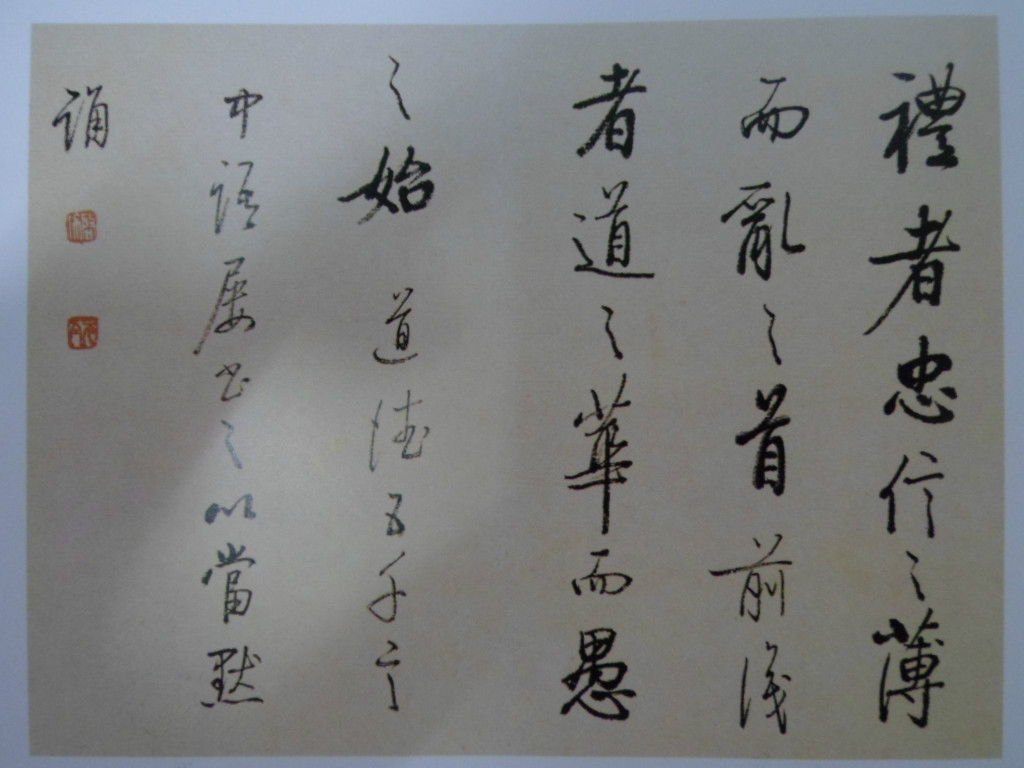 禮者忠信之薄
而亂之首前識
者道之華而愚
之始道德五千言
中語屢書之以當默
誦